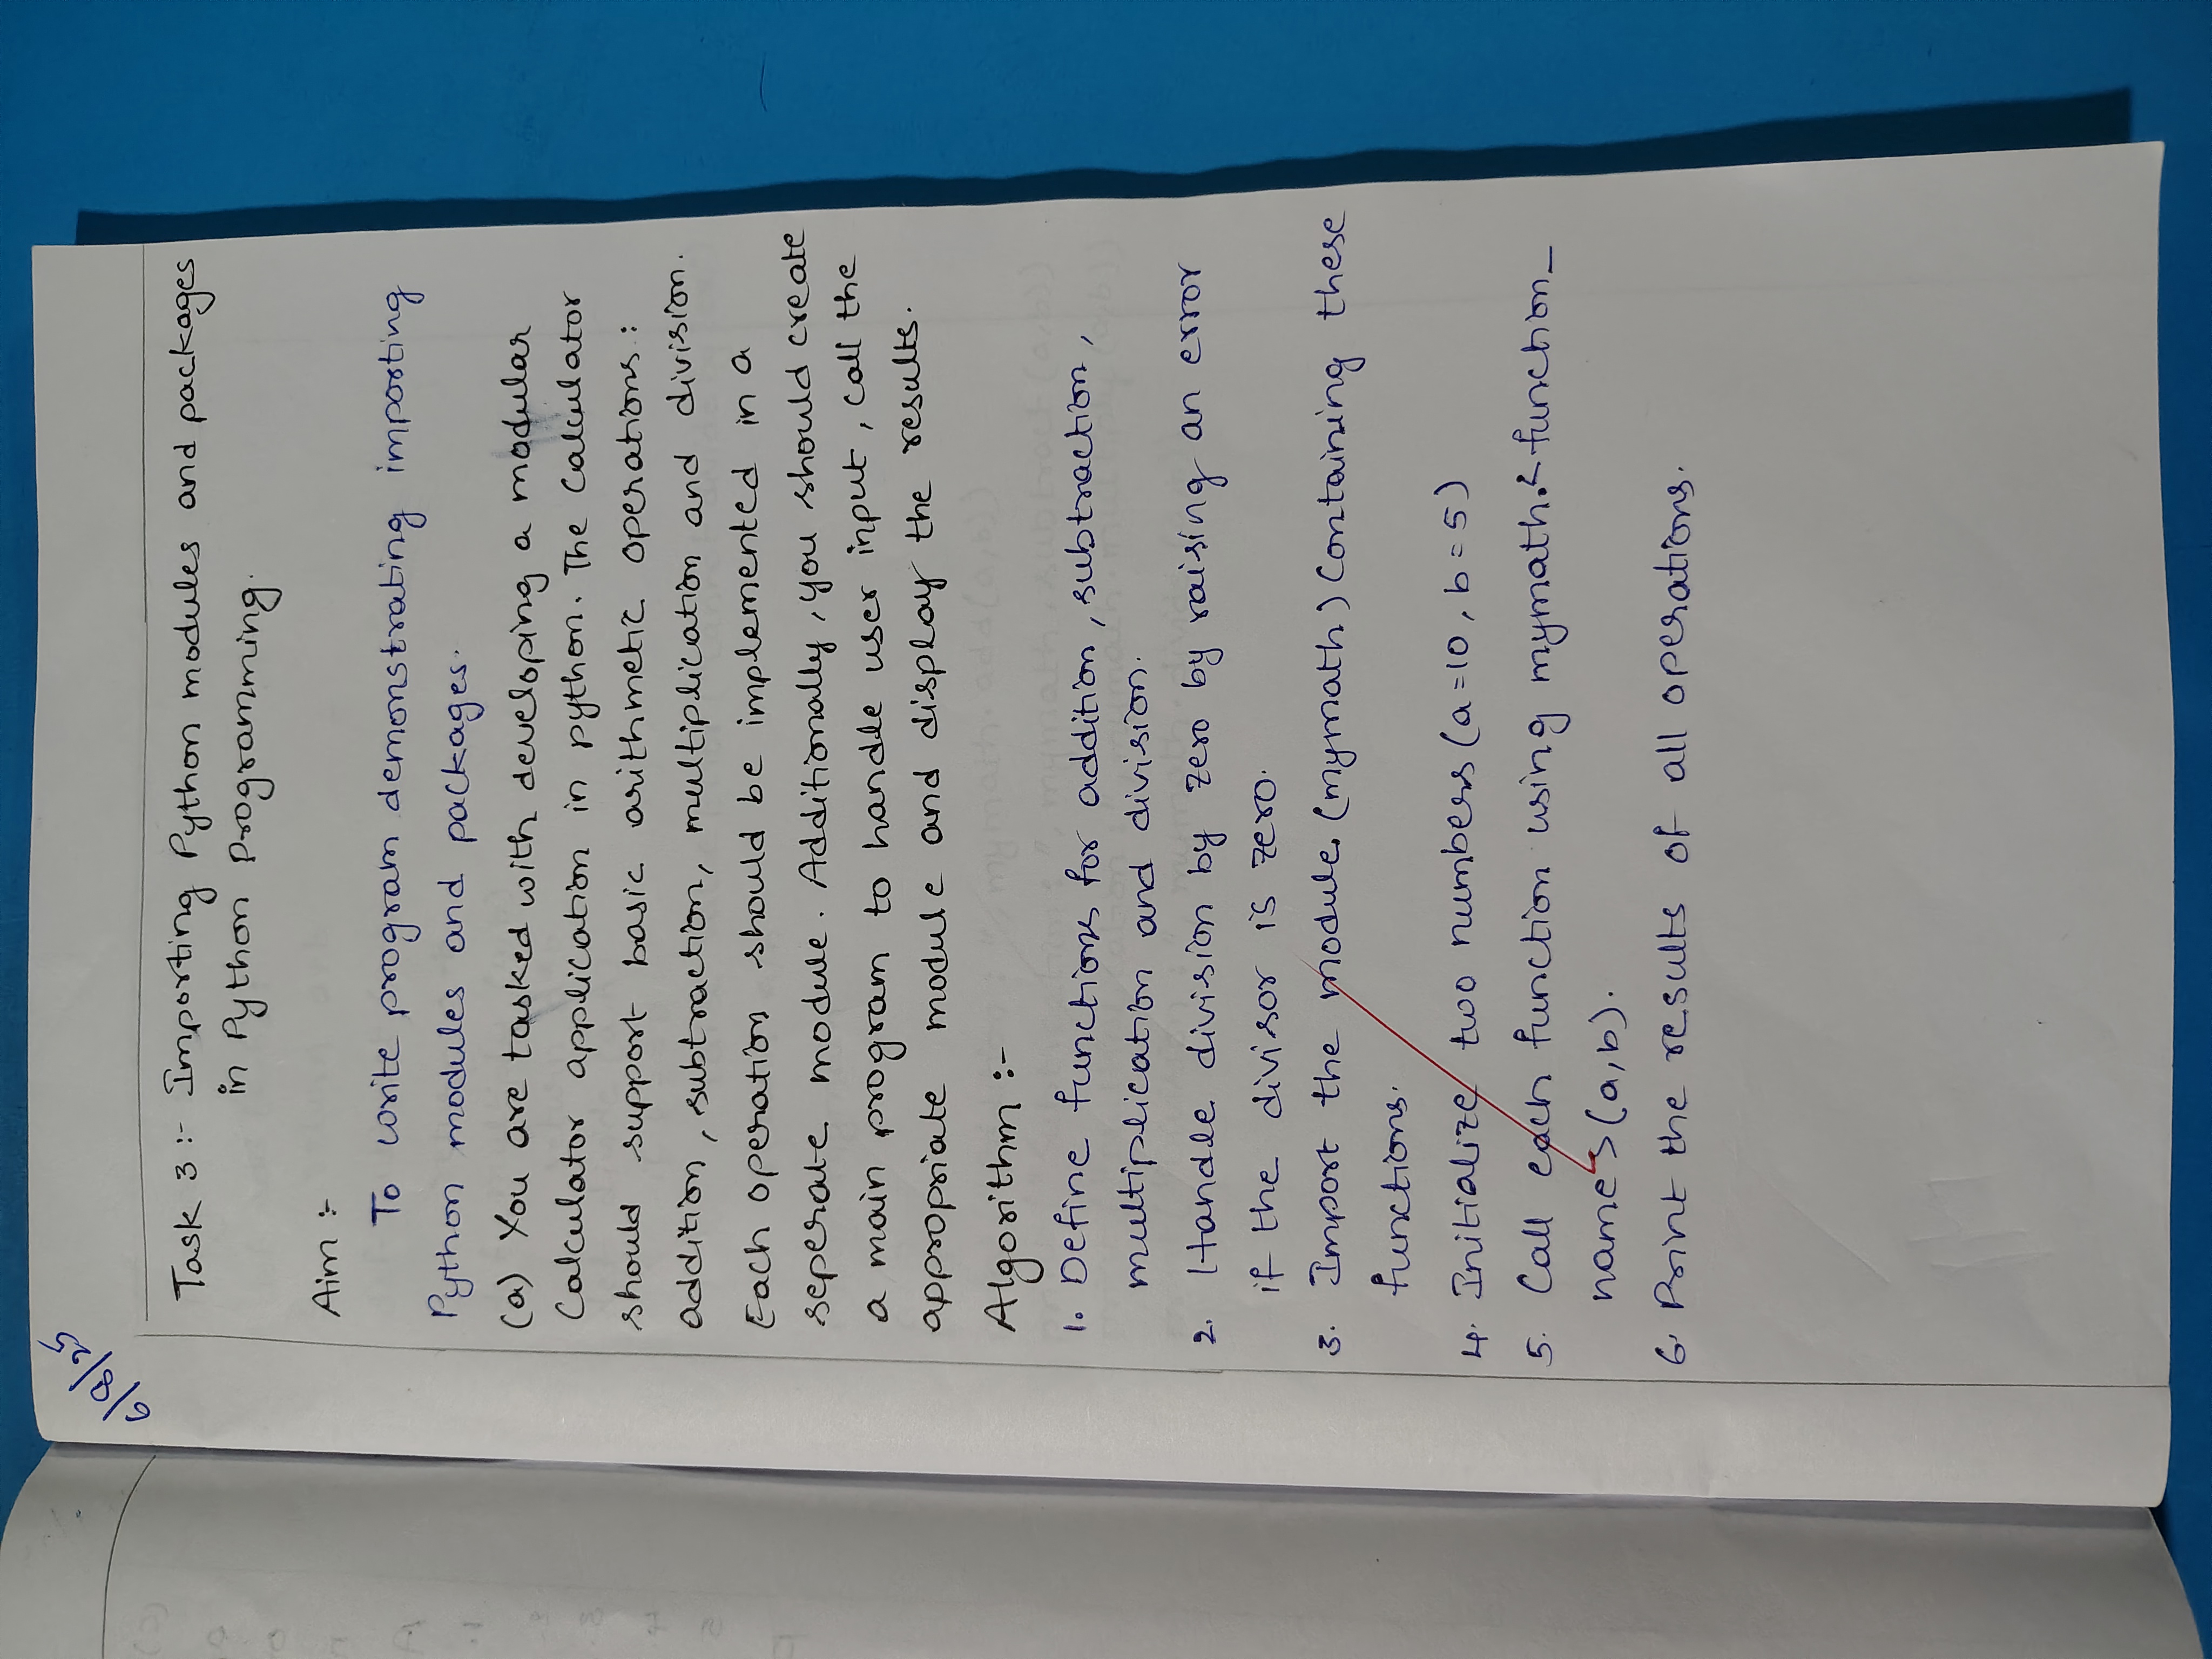 6/8/25
Task 3 :- Importing Python modules and packages
in Python Programming.
Aim :-
To write program demonstrating importing
Python modules and packages.
(a) You are tasked with developing a modular
Calculator application in python. The Calculator
should support basic arithmetic operations :
addition, subtraction, multiplication and division.
Each operation should be implemented in a
seperate module. Additionally, you should create
a main program to handle user input, call the
appropriate module and display the results.
Algorithm :-
1. Define functions for addition, subtraction,
multiplication and division.
2. Handle division by zero by raising an error
if the divisor is zero.
3. Import the module (mymath) Containing these
functions.
4. Initialize two numbers (a=10, b=5)
5. Call each function using mymath.<function_
name>(a,b).
6. Print the results of all operations.